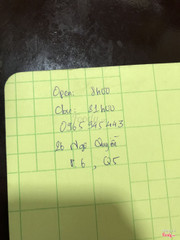 Open: 8h00
Close: 21h00
0965 945 443
26 Ngô Quyền
P. 6, Q5